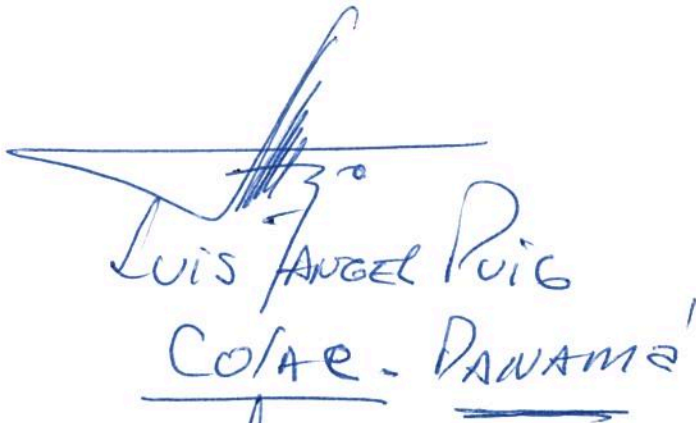 Luis ANGEL Puig
COlAC - PANAMá